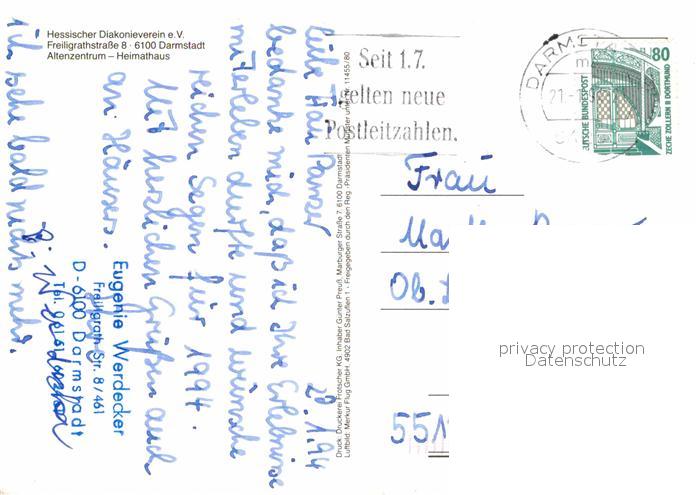 Hessischer Diakonieverein e.V.
Freiligrathstraße 8 · 6100 Darmstadt
Altenzentrum – Heimathaus
20.1.94
Liebe Frau
bedanke mich, daß ich Ihre Erlebnisse
miterleben durfte und wünsche
reichen Segen für 1994.
Mit herzlichen Grüßen auch
an Häusers.
ich sehe bald nichts mehr.
Eugenie Werdecker
Freiligrath-Str. 8/461
D-6100 Darmstadt
Tel.
Druck: Druckerei Frotscher KG, Inhaber Günter Preuß, Marburger Straße 7, 6100 Darmstadt
Luftbild: Merkur Flug GmbH, 4902 Bad Salzuflen 1 · Freigegeben durch den Reg.-Präsidenten Münster unter Nr. 11455/80
Seit 1.7.
gelten neue
Postleitzahlen.
DARMSTA
21
80
DEUTSCHE BUNDESPOST
ZECHE ZOLLERN II DORTMUND
Frau
Ma
Ob.
551
privacy protection
Datenschutz